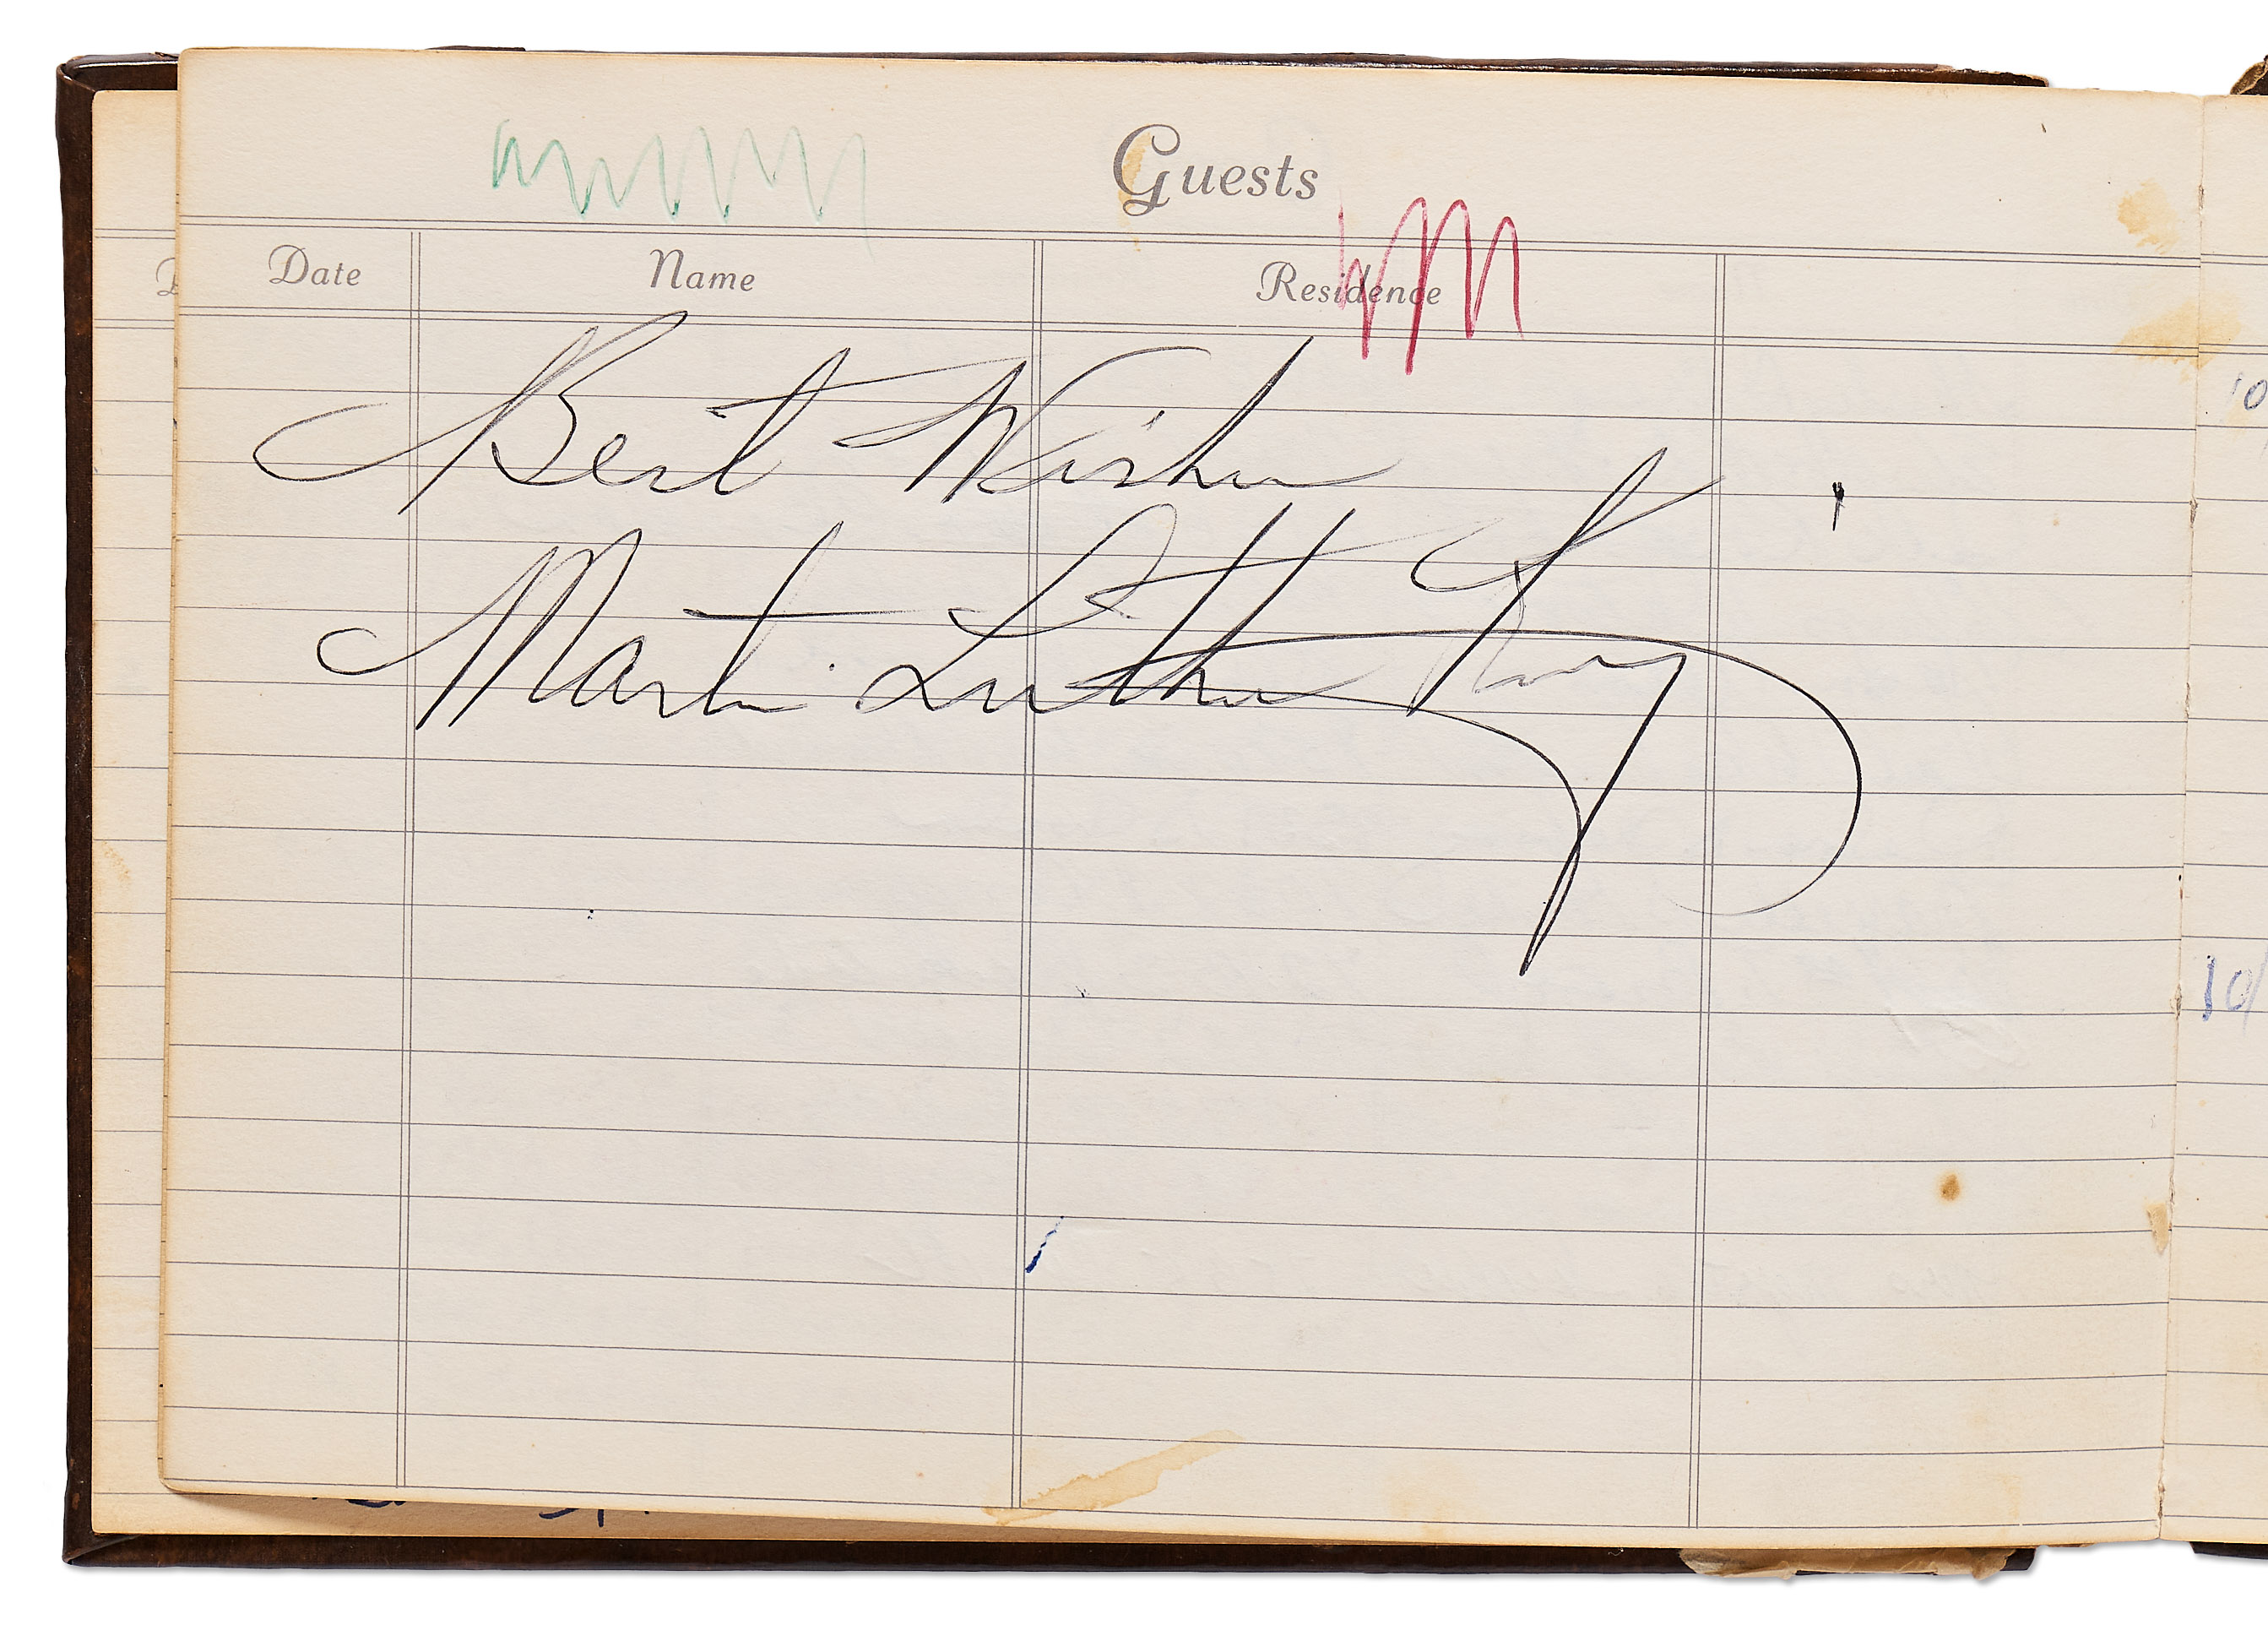 Guests
Date Name Residence
Best Wishes
Martin Luther King
10
10/